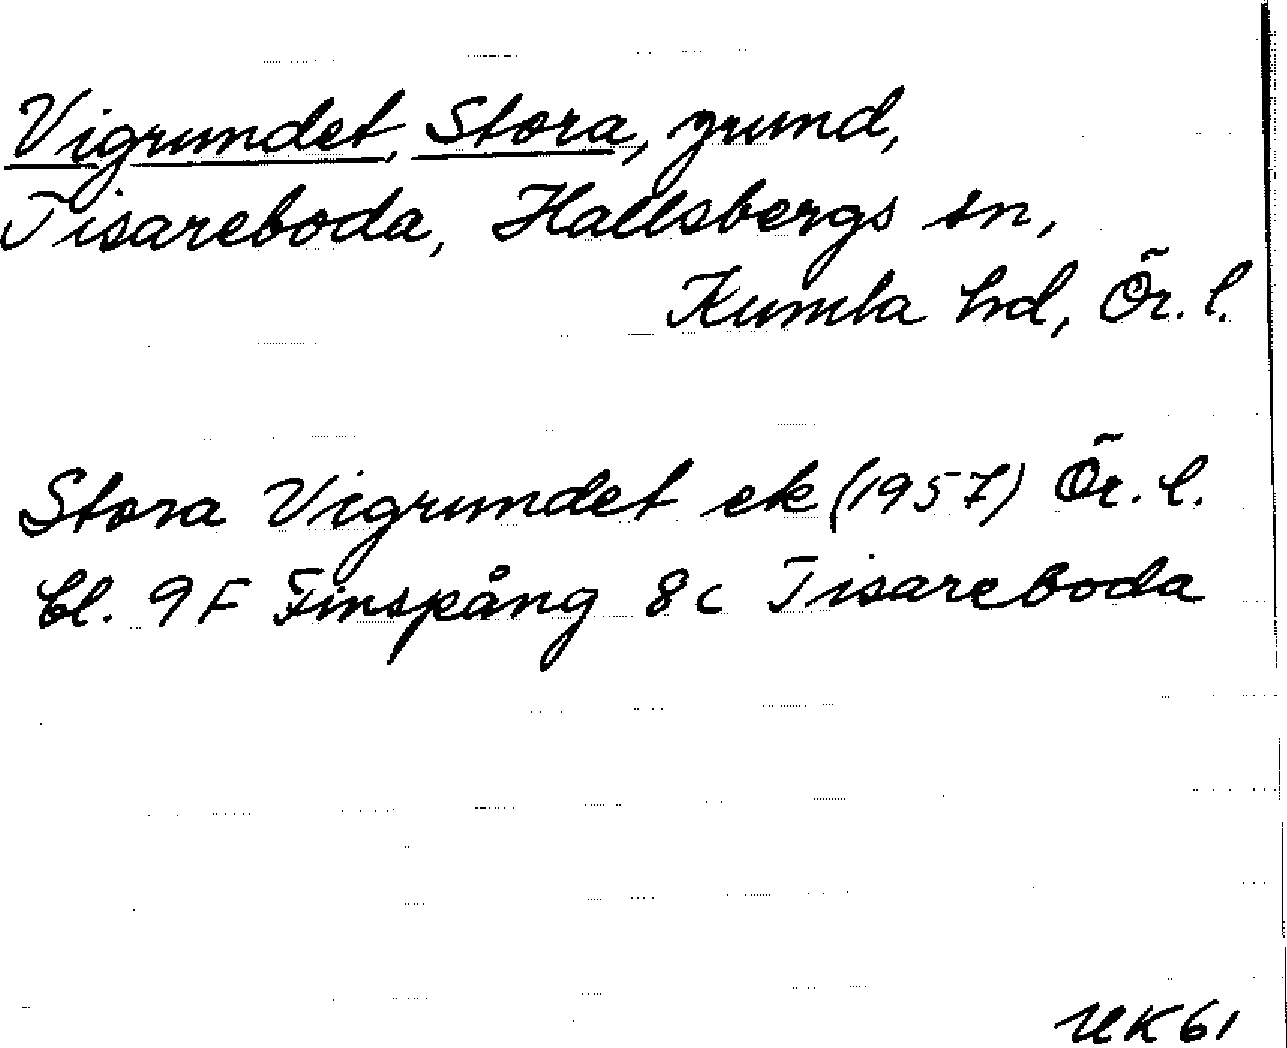 Vigrundet, Stora, grund,
Tisareboda, Hallsbergs sn,
Kumla hd, Ör. l.
Stora Vigrundet ek (1957) Ör. l.
bl. 9F Finspång 8c Tisareboda
UK 61